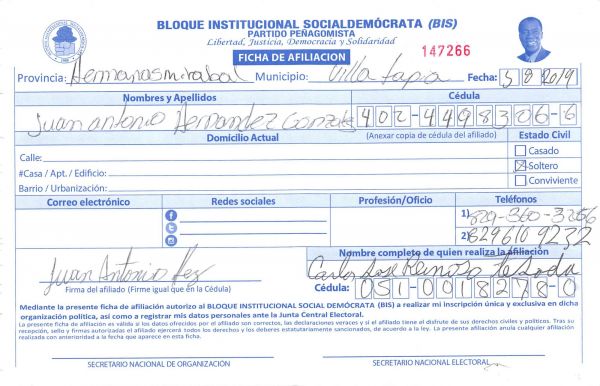 BLOQUE INSTITUCIONAL SOCIALDEMÓCRATA (BIS)
PARTIDO PEÑAGOMISTA
Libertad, Justicia, Democracia y Solidaridad
FICHA DE AFILIACION
147266
Provincia: Hermanas mirabal Municipio: Villa tapia Fecha: 5 8 2019
Nombres y Apellidos Cédula
Juan antonio Hernandez Gonzalez 402-4498306-6
Domicilio Actual (Anexar copia de cédula del afiliado) Estado Civil
Calle: Casado
#Casa / Apt. / Edificio: Soltero
Barrio / Urbanización: Conviviente
Correo electrónico Redes sociales Profesión/Oficio Teléfonos
1) 829-360-3256
2) 829 610 9232
Juan Antonio Hez
Firma del afiliado (Firme igual que en la Cédula)
Nombre completo de quien realiza la afiliación
Carlos Jose Reinoso
Cédula: 051-0018278-0
Mediante la presente ficha de afiliación autorizo al BLOQUE INSTITUCIONAL SOCIAL DEMÓCRATA (BIS) a realizar mi inscripción única y exclusiva en dicha
organización política, así como a registrar mis datos personales ante la Junta Central Electoral.
La presente ficha de afiliación es válida si los datos ofrecidos por el afiliado son correctos, las declaraciones veraces y si el afiliado tiene el disfrute de sus derechos civiles y políticos. Tras su
recepción, sello y firmas autorizadas el afiliado ejercerá todos los derechos y los deberes estatutariamente sancionados, de acuerdo a la ley. La presente afiliación anula cualquier afiliación
realizada con anterioridad a la fecha que aparece en esta ficha.
SECRETARIO NACIONAL DE ORGANIZACIÓN SECRETARIO NACIONAL ELECTORAL